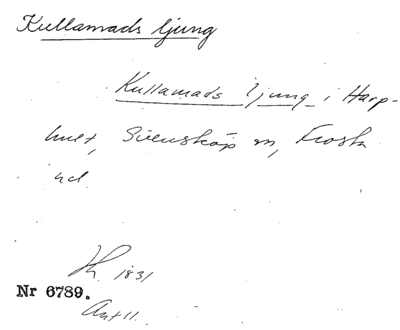 Kullamads ljung
Kullamads ljung i Harp-
hult, Svensköp sn, Frosta
hd.
1831
Nr 6789.
Ant 11.